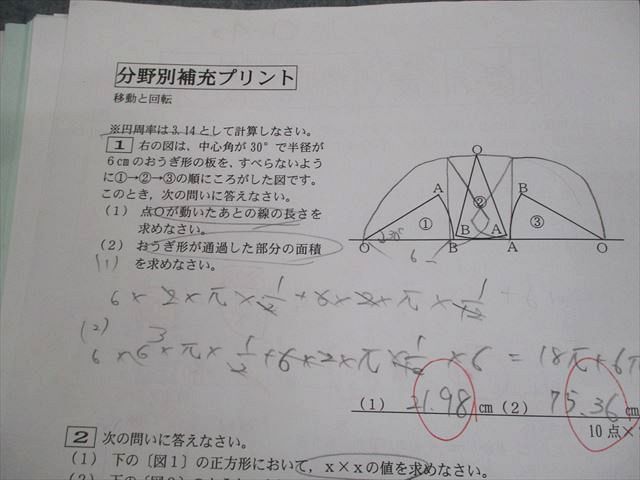 分野別補充プリント
移動と回転
※円周率は3.14として計算しなさい。
1 右の図は、中心角が30°で半径が
6cmのおうぎ形の板を、すべらないよう
に①→②→③の順にころがした図です。
このとき、次の問いに答えなさい。
(1) 点Oが動いたあとの線の長さを
求めなさい。
(2) おうぎ形が通過した部分の面積
を求めなさい。
O
A ② B
① ③
30°
O B B A A O
6
(1)
6×2×π×1/2+6×2×π×1/12
(2)
6×6×π×1/2+6×2×π×1/12×6=18π+6π
(1) 21.98 cm (2) 75.36 cm
10点×
2 次の問いに答えなさい。
(1) 下の〔図1〕の正方形において、x×xの値を求めなさい。